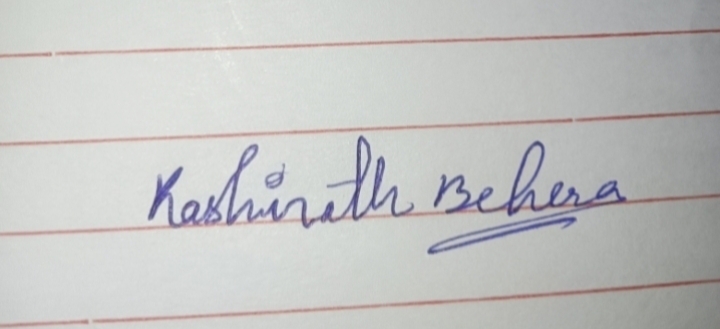 Kashinath Behera